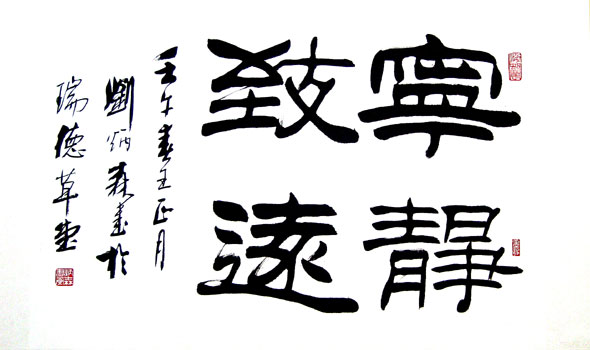 寧靜
致遠
壬午春王正月
劉炳森書於
瑞德草堂